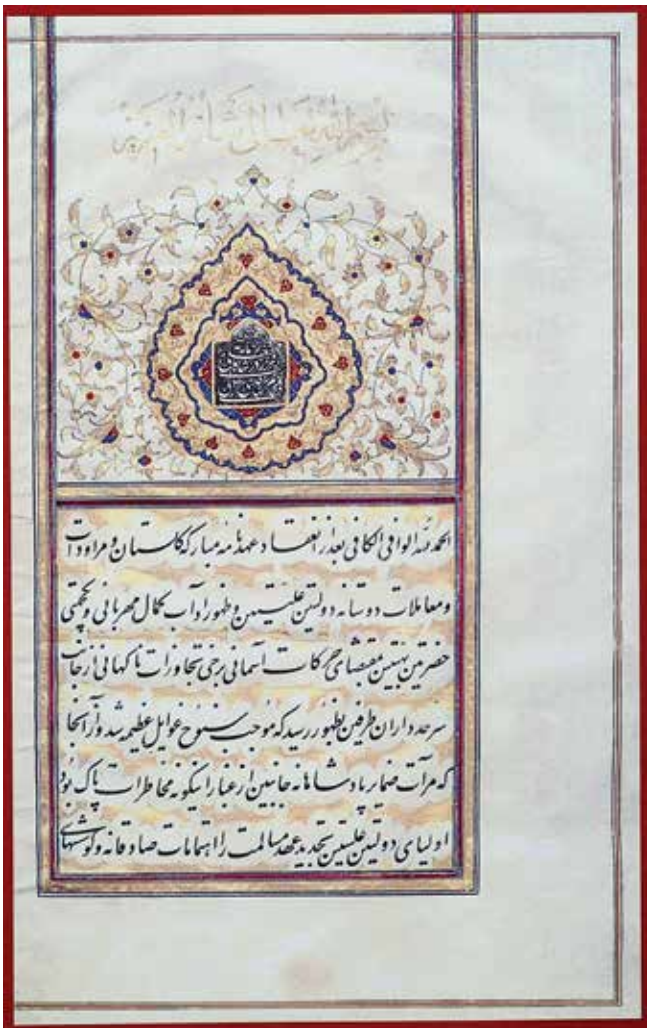 الحمد لله الوافی الکافی بعد از انعقاد عهدنامه مبارکه گلستان و مراودات
و معاملات دوستانه دولتین علیتین و ظهور آداب کمال مهربانی و یکجهتی
حضرتین بهیتین بمقتضای حرکات آسمانی برخی تجاوزات ناگهانی از جانب
سرحدداران طرفین بظهور رسید که موجب سنوح غوایل عظیمه شد و از آنجا
که مرآت ضمایر پادشاهانه جانبین از غبار اینگونه مخاطرات پاک بود
اولیای دولتین علیتین تجدید عهد مسالمت را اهتمامات صادقانه و کوششهای